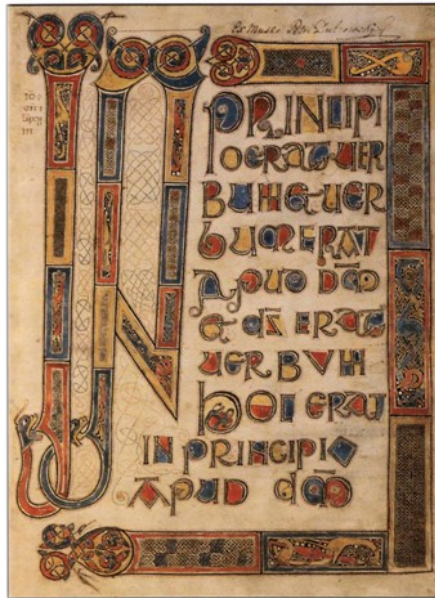 Ex Museo Petri Dubrowsky
IN PRINCIP
IO ERAT UER
BUM ET UER
BUM ERAT
APUD DM̄
ET DS̄ ERAT
UERBUM
hOC ERAT
IN PRINCIPIO
APUD DM̄